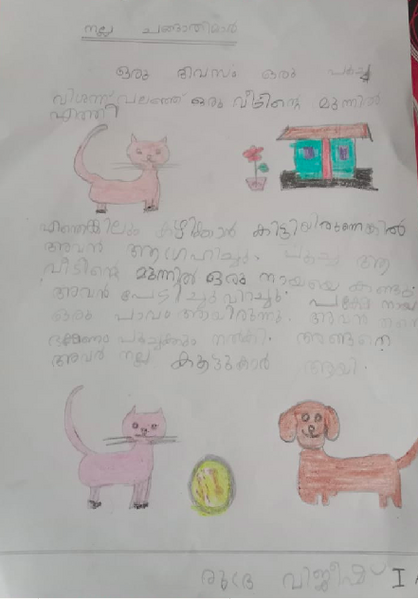 നല്ല ചങ്ങാതിമാർ
ഒരു ദിവസം ഒരു പൂച്ച
വിശന്ന് വലഞ്ഞ് ഒരു വീടിന്റെ മുന്നിൽ
എത്തി.
എന്തെങ്കിലും കഴിക്കാൻ കിട്ടിയിരുന്നെങ്കിൽ
അവൻ ആഗ്രഹിച്ചു. പൂച്ച ആ
വീടിന്റെ മുന്നിൽ ഒരു നായയെ കണ്ടു.
അവൻ പേടിച്ചു വിറച്ചു. പക്ഷേ നായ
ഒരു പാവം ആയിരുന്നു. അവൻ
ഭക്ഷണം പൂച്ചക്കും നൽകി. അങ്ങനെ
അവർ നല്ല കൂട്ടുകാർ ആയി.
രുദ്ര വിജീഷ് I